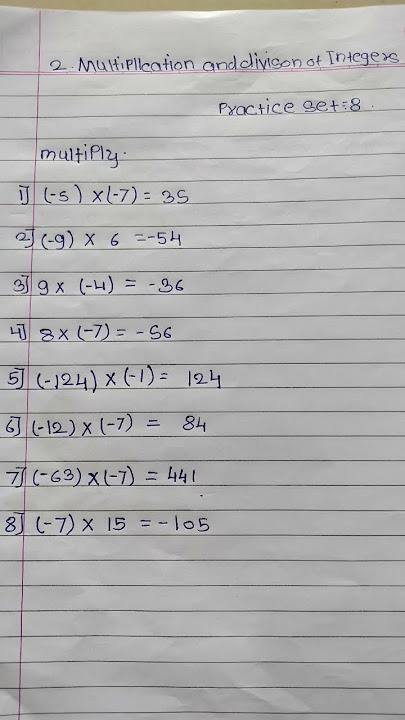 2. Multiplication and divison of Integers
Practice set:8.
multiply.
1] (-5) ×(-7)= 35
2] (-9) × 6 =-54
3] 9× (-4) = -36
4] 8×(-7)= -56
5] (-124)×(-1)= 124
6] (-12)×(-7) = 84
7] (-63)×(-7) = 441
8] (-7)× 15 =-105